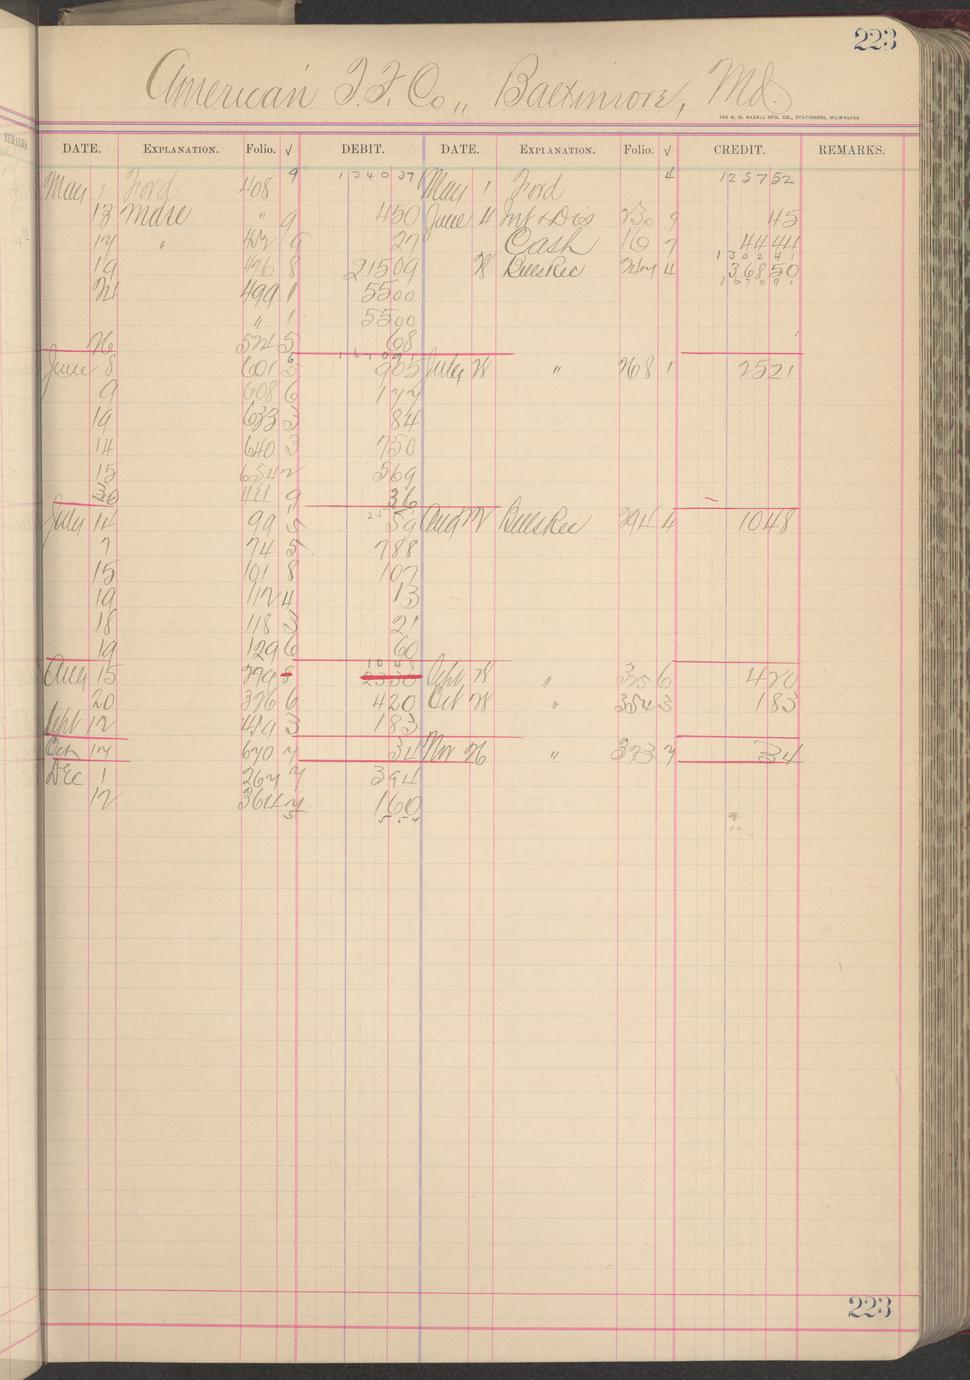 223
American T.F. Co., Baltimore, Md.
THE H. G. RAZALL MFG. CO., STATIONERS, MILWAUKEE
DATE. EXPLANATION. Folio. √ DEBIT. DATE. EXPLANATION. Folio. √ CREDIT. REMARKS.
May 1 Ford 408 9 134037 May 1 Ford 4 125752
13 Mdse " 9 450 June 4 Int & Dis 230 9 45
17 " 9 27 Cash 16 7 4444
130241
19 476 8 21509 28 BillsRec 4 36850
167091
24 499 1 5500
" 1 5500
26 524 5 68
167091
June 8 601 5 905 July 28 " 268 1 2521
9 608 6 177
19 633 3 84
14 640 3 750
15 654 2 569
30 9 36
July 14 99 5 59 Aug 12 BillsRec 294 4 1048
7 74 5 788
15 101 8 107
19 112 4 13
18 118 3 21
19 129 6 60
1048
Aug 15 279 8 2330 Sept 28 " 325 6 420
20 326 6 420 Oct 28 354 3 183
Sept 12 3 183
Oct 17 670 7 34 Nov 26 " 373 7 34
Dec 1 267 7 394
12 364 7 160
5 554
223